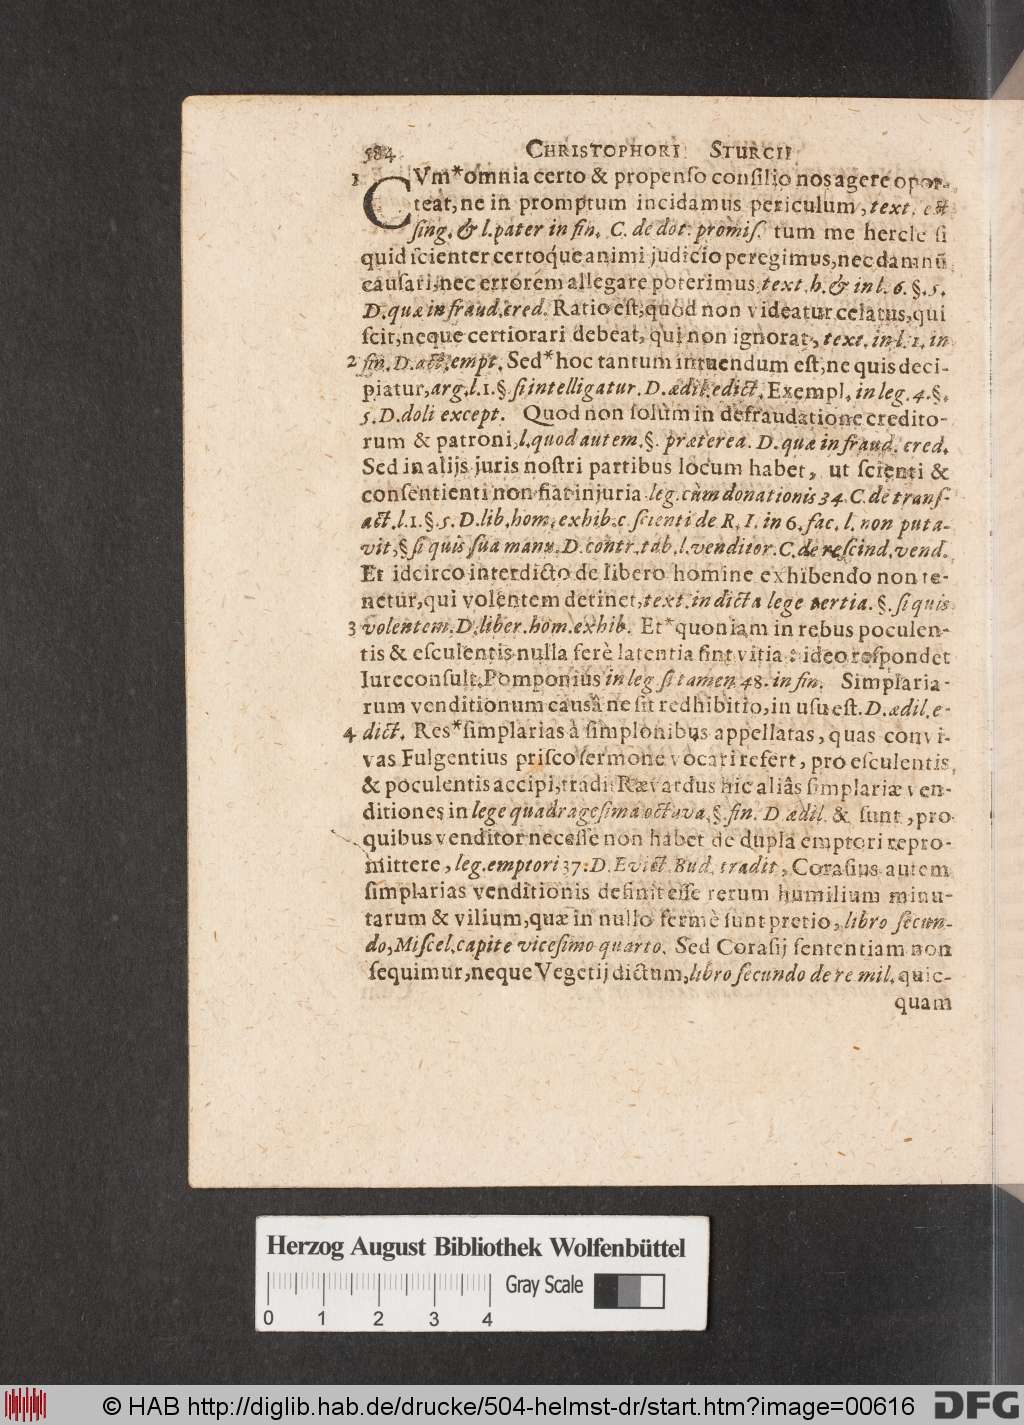 584 CHRISTOPHORI STURCII
1 CVm*omnia certo & propenso consilio nos agere opor-
teat, ne in promptum incidamus periculum, text. est
sing. & l. pater in fin. C. de dot. promis. tum me hercle si
quid scienter certoq́ue animi judicio peregimus, nec damnū
causari, nec errorem allegare poterimus text. h. & in l. 6. §. 5.
D. quæ in fraud. cred. Ratio est, quod non videatur celatus, qui
scit, neque certiorari debeat, qui non ignorat, text. in l. 1. in
2 fin. D. act. empt. Sed*hoc tantum intuendum est, ne quis deci-
piatur, arg. l. 1. §. si intelligatur. D. ædil. edict. Exempl. in leg. 4. §.
5. D. doli except. Quod non solùm in defraudatione credito-
rum & patroni, l. quod autem. §. præterea. D. quæ in fraud. cred.
Sed in alijs juris nostri partibus locum habet, ut scienti &
consentienti non fiat injuria leg. cùm donationis 34. C. de trans-
act. l. 1. §. 5. D. lib. hom. exhib. c. scienti de R. I. in 6. fac. l. non puta-
vit, § si quis sua manu. D. contr. tab. l. venditor. C. de rescind. vend.
Et idcirco interdicto de libero homine exhibendo non te-
netur, qui volentem detinet, text. in dicta lege tertia. §. si quis
3 volentem. D. liber. hom. exhib. Et*quoniam in rebus poculen-
tis & esculentis nulla ferè latentia sint vitia: ideo respondet
Iureconsult. Pomponius in leg si tamen 48. in fin. Simplaria-
rum venditionum causâ ne sit redhibitio, in usu est. D. ædil. e-
4 dict. Res*simplarias à simplonibus appellatas, quas convi-
vas Fulgentius prisco sermone vocari refert, pro esculentis
& poculentis accipi, tradit Rævardus hic aliâs simplariæ ven-
ditiones in lege quadragesima octava, §. fin. D ædil. & sunt, pro
quibus venditor necesse non habet de dupla emptori repro-
mittere, leg. emptori 37. D. Evict. Bud. tradit, Corasius autem
simplarias venditionis definit esse rerum humilium minu-
tarum & vilium, quæ in nullo fermè sunt pretio, libro secun-
do, Miscel. capite vicesimo quarto. Sed Corasij sententiam non
sequimur, neque Vegetij dictum, libro secundo de re mil. quic-
quam
Herzog August Bibliothek Wolfenbüttel
Gray Scale
0 1 2 3 4
© HAB http://diglib.hab.de/drucke/504-helmst-dr/start.htm?image=00616
DFG